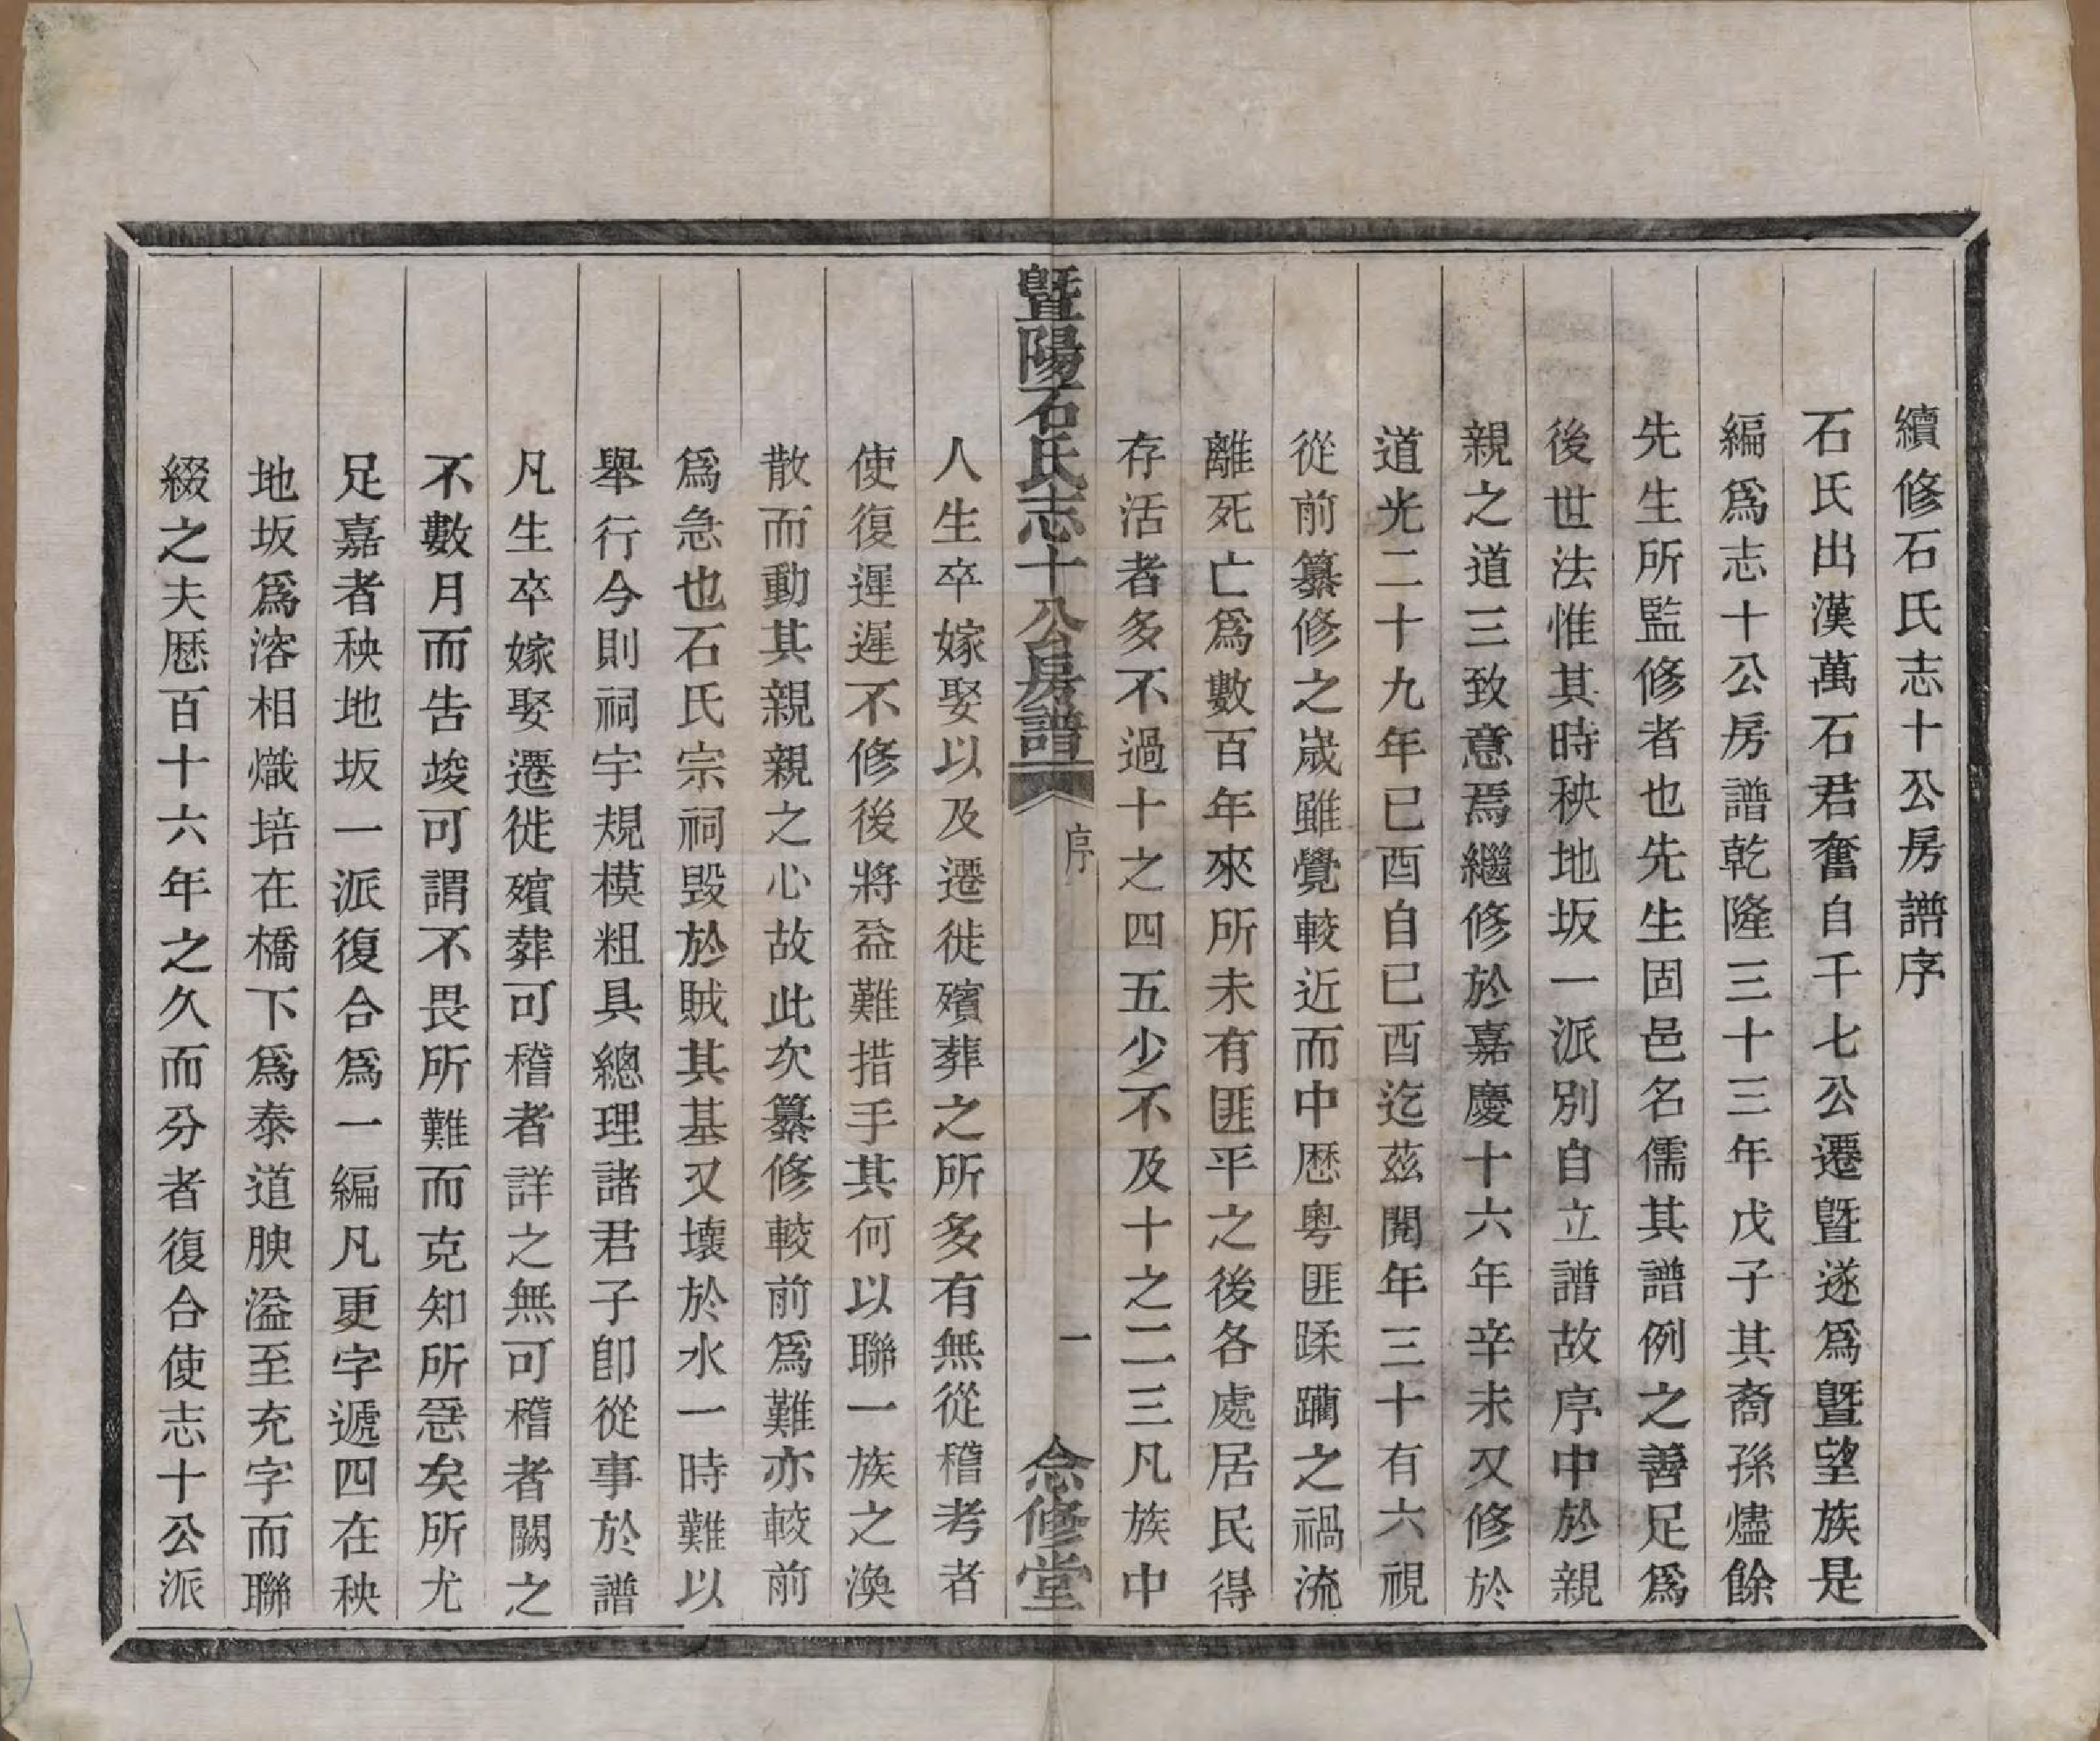 續修石氏志十公房譜序
石氏出漢萬石君奮自千七公遷暨遂爲暨望族是
編爲志十公房譜乾隆三十三年戊子其裔孫燼餘
先生所監修者也先生固邑名儒其譜例之善足爲
後世法惟其時秧地坂一派別自立譜故序中於親
親之道三致意焉繼修於嘉慶十六年辛未又修於
道光二十九年已酉自已酉迄茲閱年三十有六視
從前纂修之歲雖覺較近而中歷粤匪蹂躪之禍流
離死亡爲數百年來所未有匪平之後各處居民得
存活者多不過十之四五少不及十之二三凡族中
暨陽石氏志十公房譜
序
一
念修堂
人生卒嫁娶以及遷徙殯葬之所多有無從稽考者
使復遲遲不修後將益難措手其何以聯一族之渙
散而動其親親之心故此次纂修較前爲難亦較前
爲急也石氏宗祠毀於賊其基又壞於水一時難以
舉行今則祠宇規模粗具總理諸君子卽從事於譜
凡生卒嫁娶遷徙殯葬可稽者詳之無可稽者闕之
不數月而告竣可謂不畏所難而克知所急矣所尤
足嘉者秧地坂一派復合爲一編凡更字遞四在秧
地坂爲溶相熾培在橋下爲泰道腴溢至充字而聯
綴之夫歷百十六年之久而分者復合使志十公派